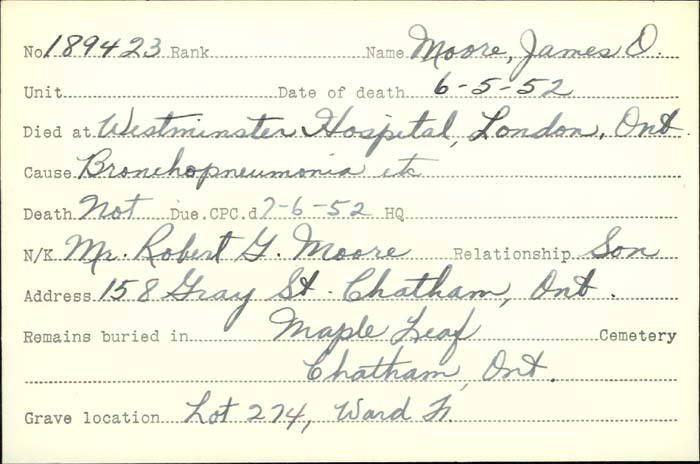 No 189423 Rank Name Moore, James O.
Unit Date of death 6-5-52
Died at Westminster Hospital, London, Ont.
Cause Bronchopneumonia etc
Death Not Due. CPC.d 7-6-52 HQ
N/K Mr. Robert G. Moore Relationship Son
Address 158 Gray St. Chatham, Ont.
Remains buried in Maple Leaf Cemetery
Chatham, Ont.
Grave location Lot 274, Ward